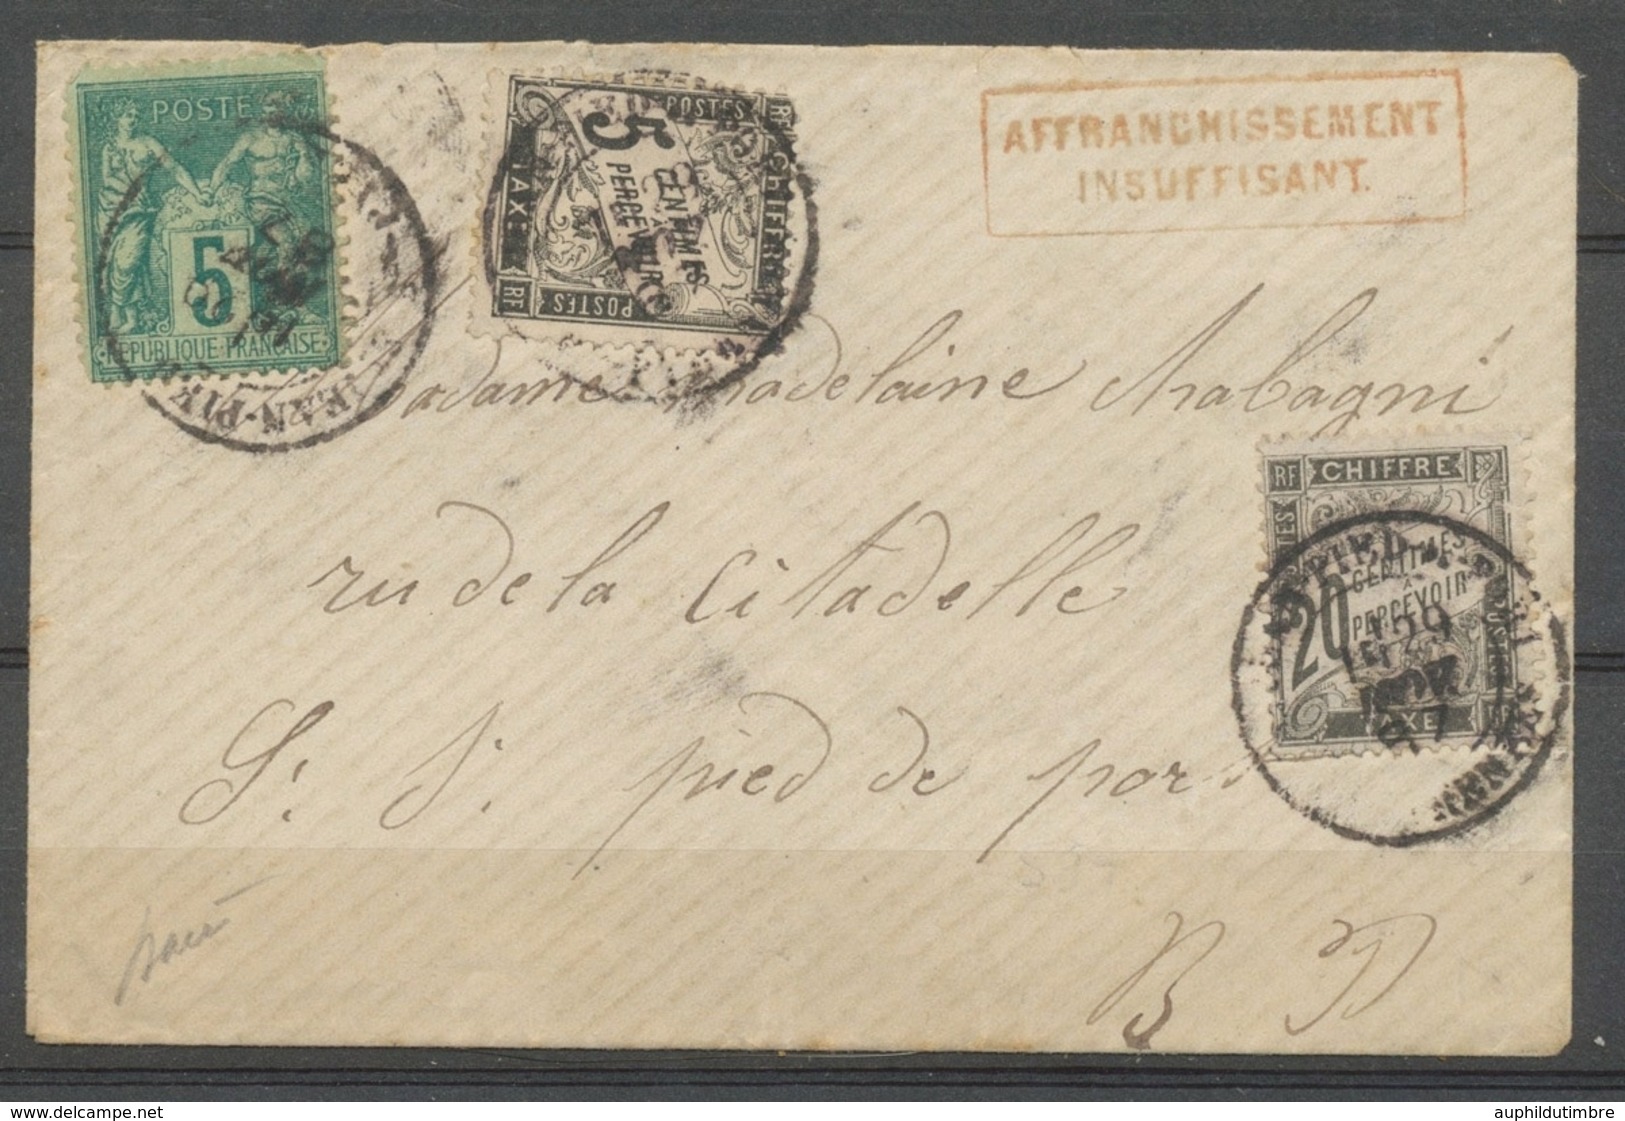 POSTES
5
REPUBLIQUE FRANÇAISE
POSTES RF
5 CENTIMES À PERCEVOIR
CHIFFRE
TAXE
RF POSTES
AFFRANCHISSEMENT
INSUFFISANT.
Madame Madelaine Arabagni
ru de la Citadelle
St. J. pied de port
B P
RF CHIFFRE
20 CENTIMES À PERCEVOIR
TAXE
auphildutimbre